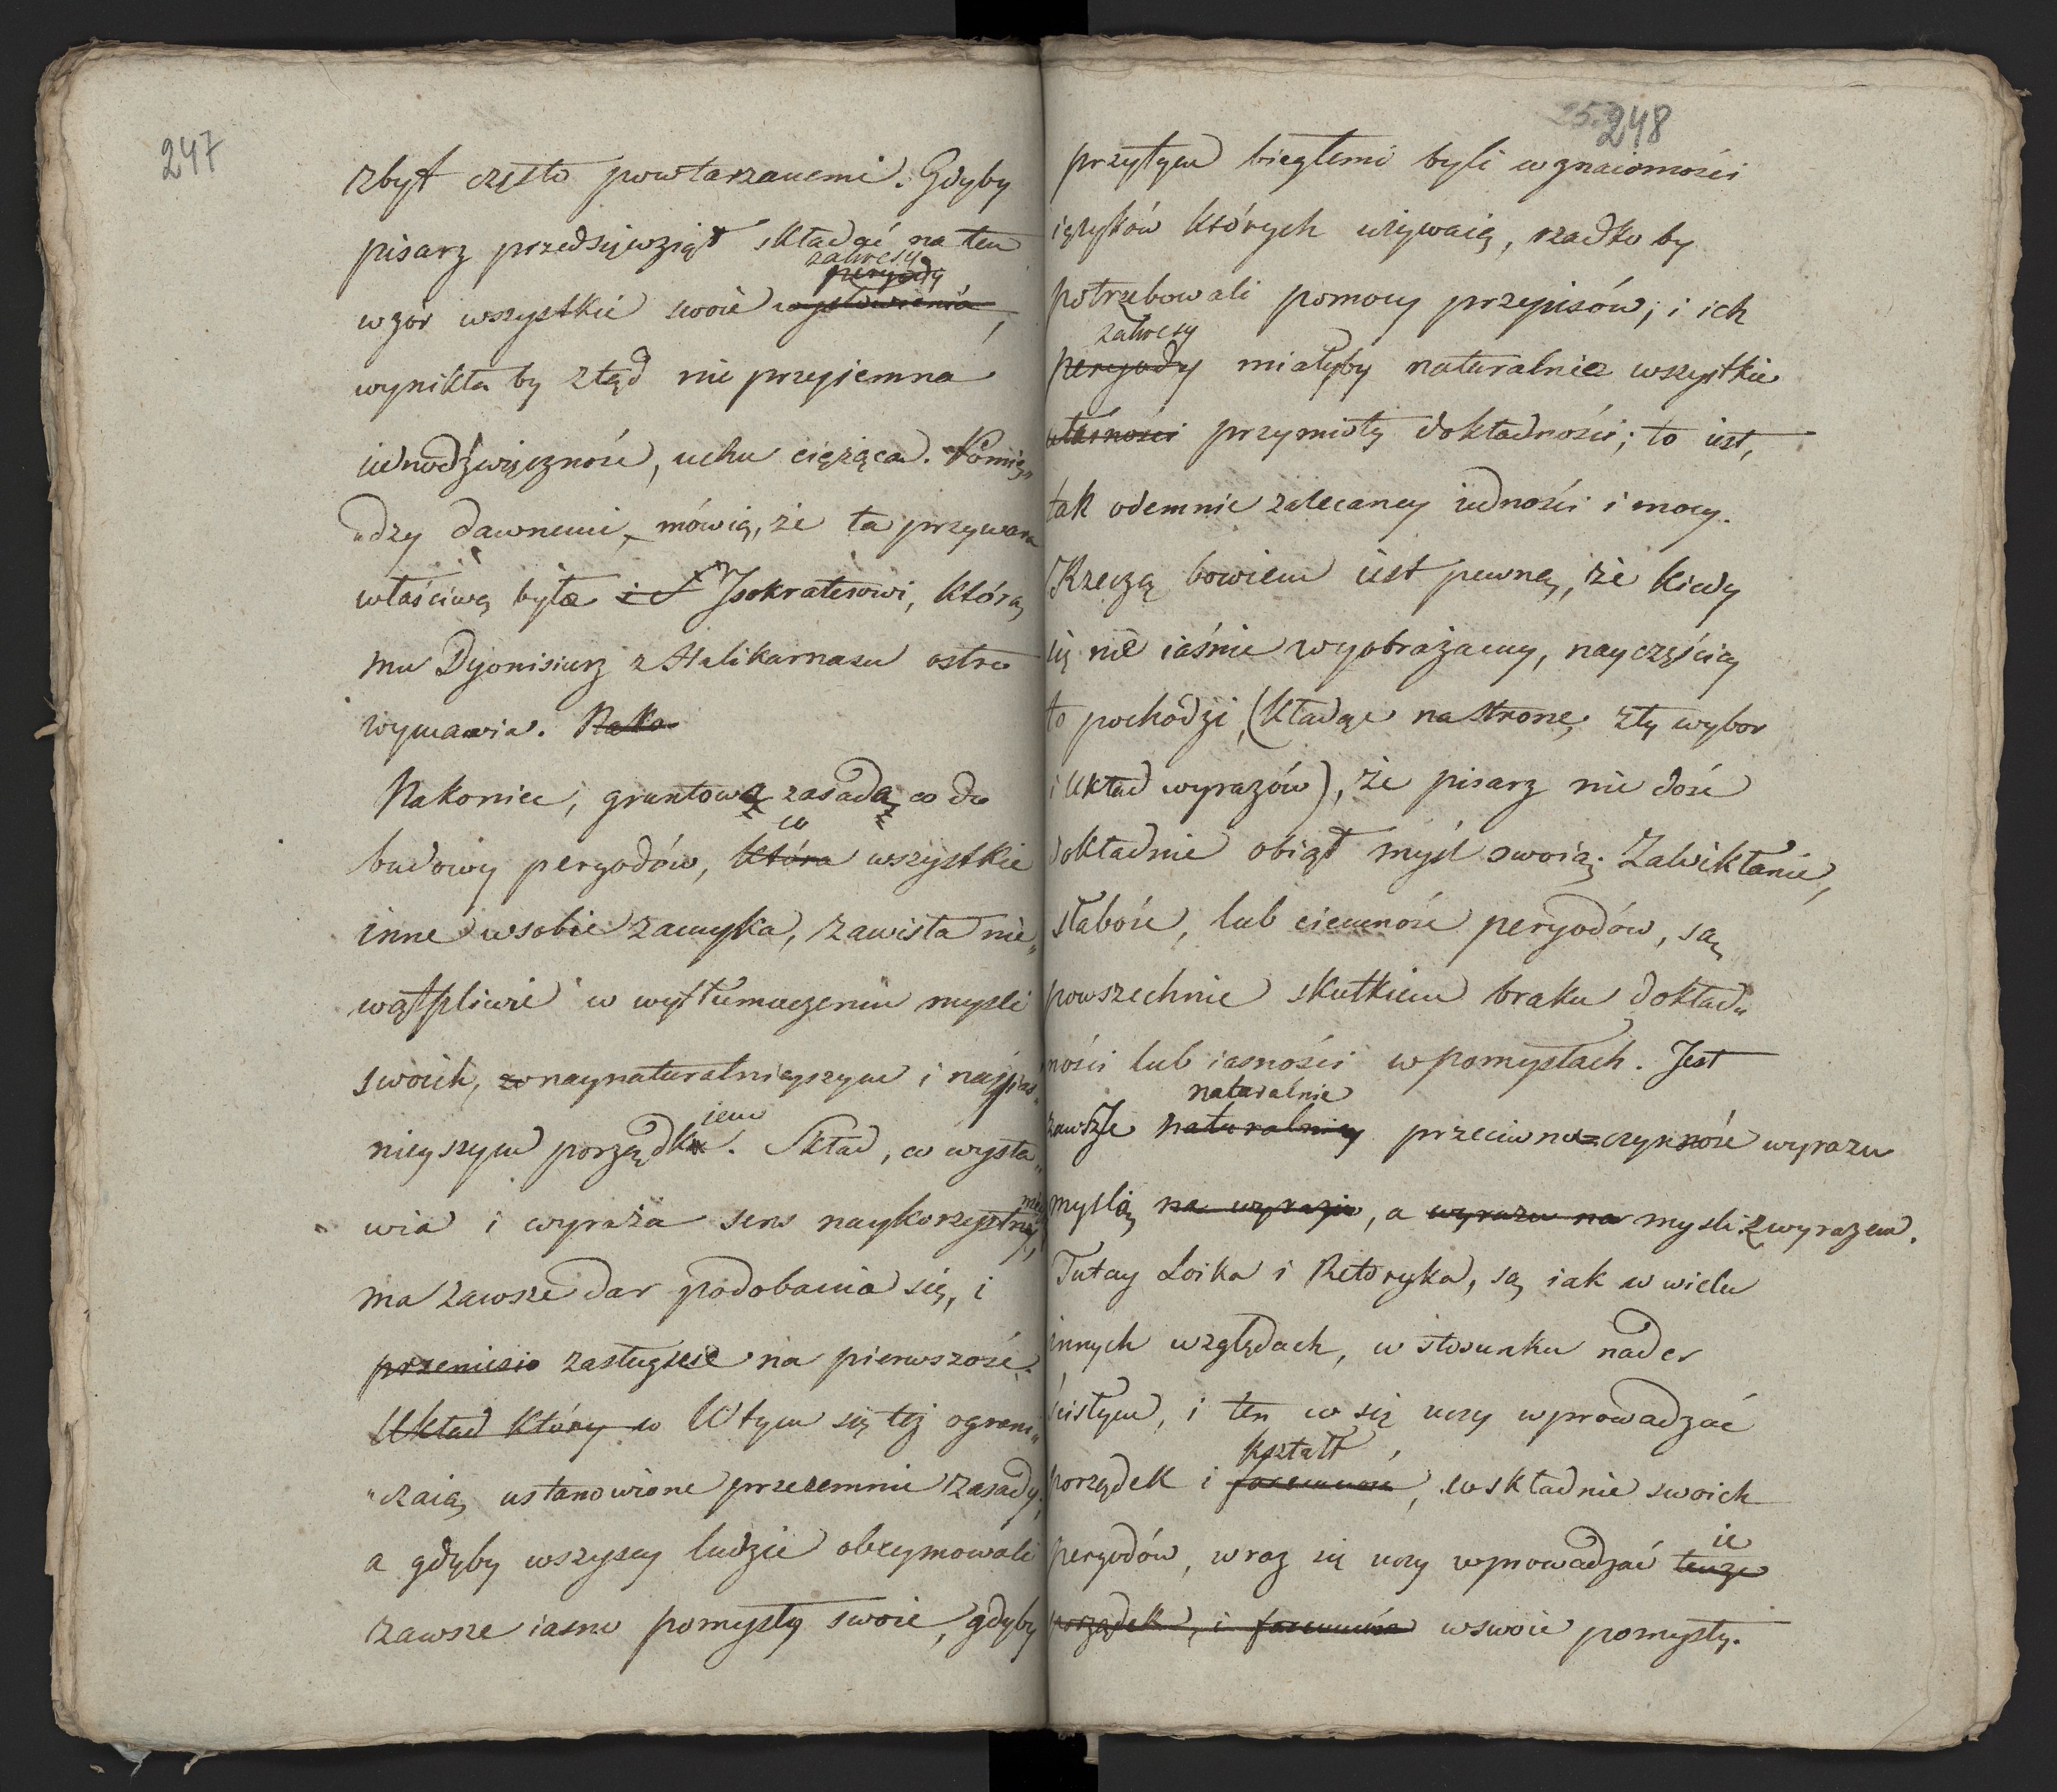 247
zbyt często powtarzanemi. Gdyby
pisarz przedsięwziął składać na ten
zakresy
peryody
wzór wszystkie swoie wysłowienia,
wynikła by ztąd nie przyiemna
iednodźwięczność, uchu ciężąca. Pomię„
„dzy dawnemi, mówią, że ta przywara
właściwą była Isokratesowi, którą
mu Dyonisiusz z Halikarnasu ostro
wymawia. Nako
Nakoniec, gruntową zasadą co do
co
budowy peryodów, która wszystkie
inne w sobie zamyka, zawisła nie„
wątpliwie w wytłumaczeniu mysli
swoich, w naynaturalnieyszym i nayjaś„
iem
nieyszym porządk. Skład, co wysta„
wia i wyraża sens naykorzystniey,
ma zawsze dar podobania się, i
przeniesio zasługuie na pierwszość.
Układ który w W tym się też ograni„
„czaią ustanowione przezemnie zasady;
a gdyby wszyscy ludzie obeymowali
zawsze iasno pomysły swoie, gdyby
248
przytym biegłemi byli w znaiomości
ięzyków których używaią, rzadko by
potrzebowali pomocy przepisów; i ich
zakresy
peryody miałyby naturalnie wszystkie
własności przymioty dokładności; to iest,
tak odemnie zalecaney iedności i mocy.
Rzeczą bowiem iest pewną, że kiedy
się nie iaśnie wyobrażamy, nayczęściey
to pochodzi, (kładąc na stronę zły wybor
i układ wyrazów), że pisarz nie dość
dokładnie obiął myśl swoią. Zawikłanie,
słabość, lub ciemność peryodów, są
powszechnie skutkiem braku dokład„
ności lub iasności w pomysłach. Jest
naturalnie
zawsze naturalniey przeciwna czynność wyrazu
myslą na wyrazie, a wyrazu na mysli z wyrazem.
Tutay Loika i Retoryka, są iak w wielu
innych względach, w stosunku nader
ścisłym, i ten co się uczy wprowadzać
kształt
porządek i foremność, w składnie swoich
peryodów, wraz się uczy wprowadzać tenże
ie
porządek, i foremność w swoie pomysły.